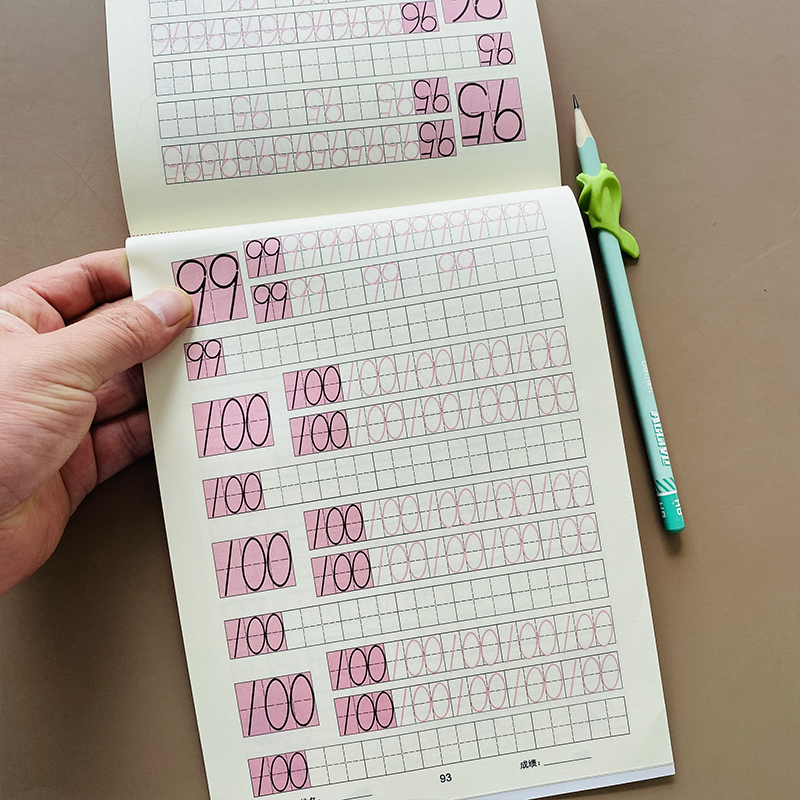 96
96 96 96 96 96 96 96 96
95
95 95 95 95
95
95 95 95 95 95 95 95 95
99
99 99 99 99 99 99 99 99
99 99 99 99
99
100
100 100 100 100 100
100 100 100 100 100
100
100
100 100 100 100 100
100 100 100 100 100
100
100
100 100 100 100 100
100 100 100 100 100
100
93
成绩：
HB